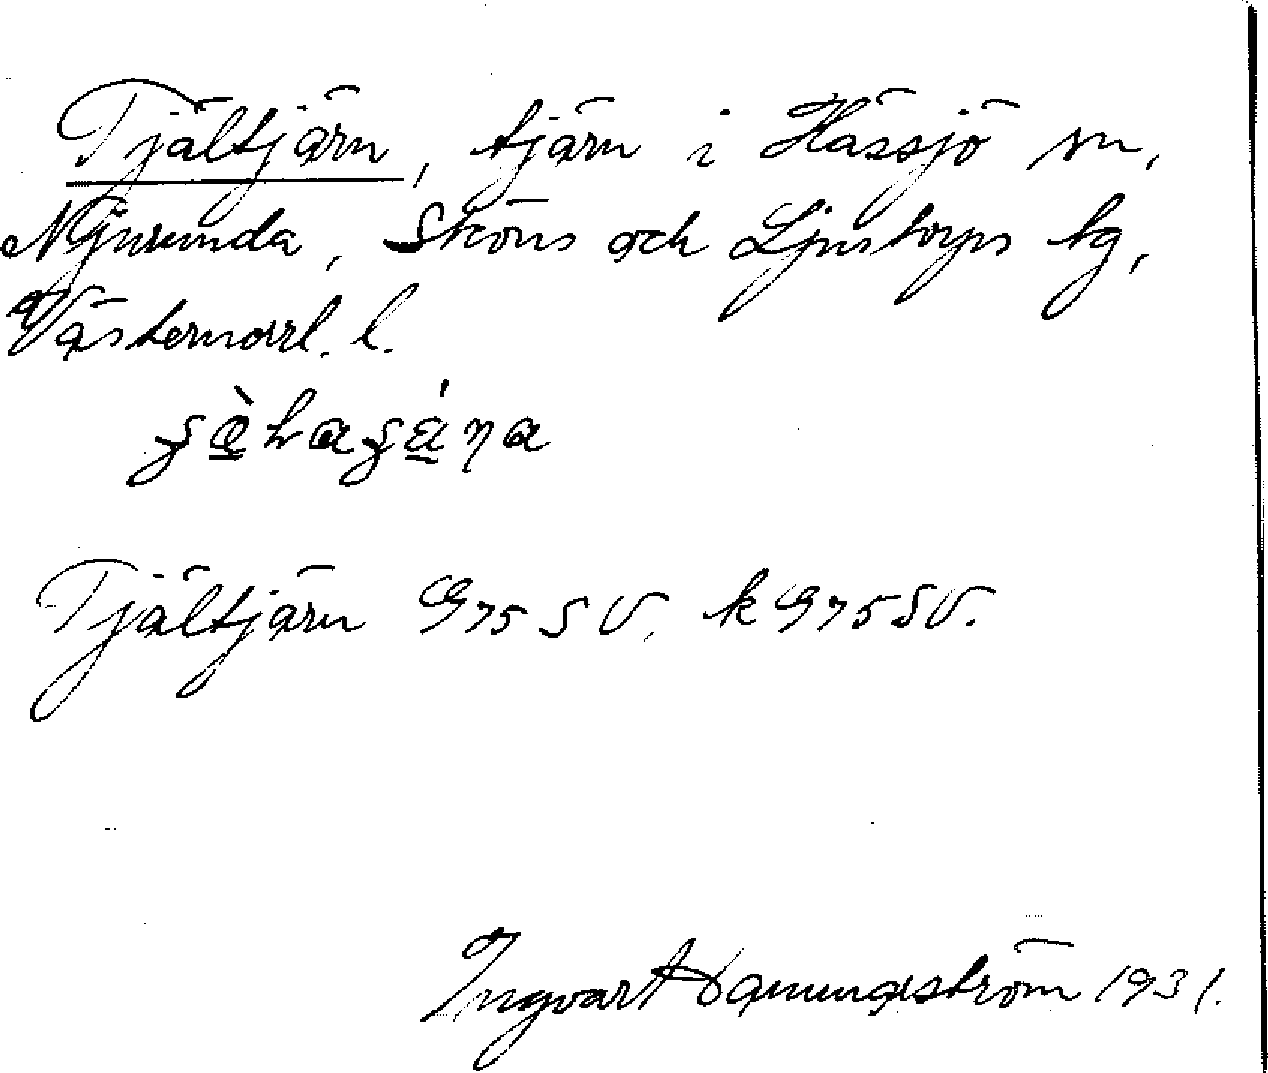 Tjältjärn, tjärn i Hässjö sn,
Njurunda, Sköns och Ljustorps tg,
Västernorrl. l.
Tjältjärn G75SV. k G75SV.
Ingvar 1931.